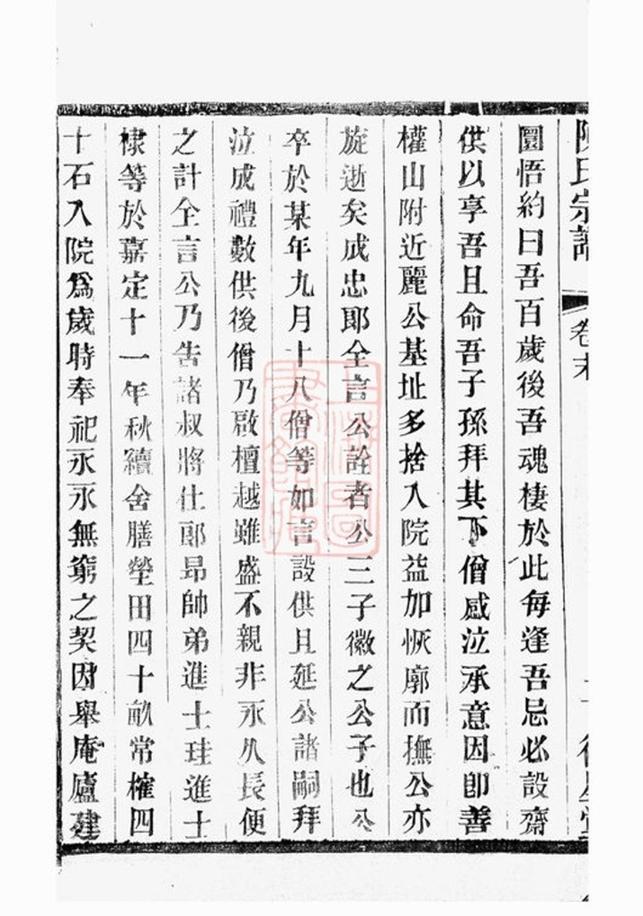 陳氏宗譜
卷末
圜悟約曰吾百歲後吾魂棲於此每逢吾忌必設齋
供以享吾且命吾子孫拜其下僧感泣承意因卽善
權山附近麗公基址多捨入院益加恢廓而撫公亦
旋逝矣成忠郎全言公詮者公三子徽之公子也公
卒於某年九月十八僧等如言設供且延公諸嗣拜
泣成禮數供後僧乃啟檀越雖盛不親非永久長便
之計全言公乃告諸叔將仕郎昻帥弟進士珪進士
棣等於嘉定十一年秋續舍膳塋田四十畝常榷四
十石入院爲歲時奉祀永永無窮之契因舉庵廬建